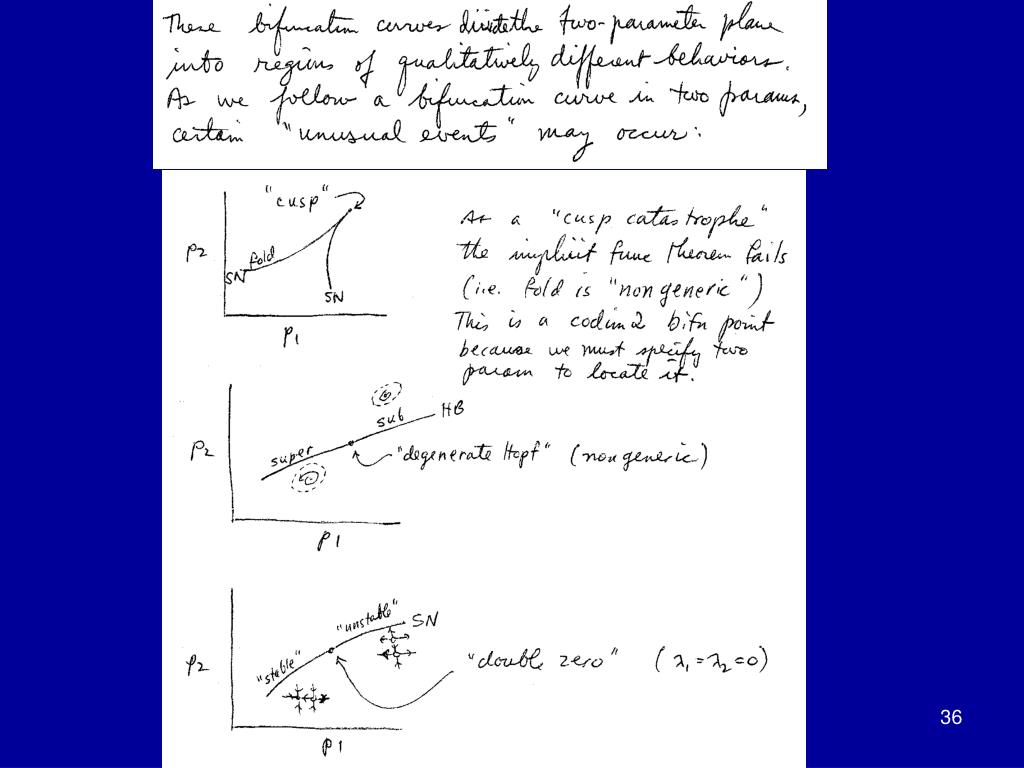 These bifurcation curves divide the two-parameter plane
into regions of qualitatively different behaviors.
As we follow a bifurcation curve in two params,
certain "unusual events" may occur:
"cusp"
P2
fold
SN
SN
P1
At a "cusp catastrophe"
the implicit func theorem fails
(i.e. fold is "nongeneric")
This is a codim 2 bifn point
because we must specify two
param to locate it.
P2
super
sub
HB
"degenerate Hopf" (nongeneric)
P1
P2
"stable"
"unstable"
SN
"double zero" (λ1=λ2=0)
P1
36